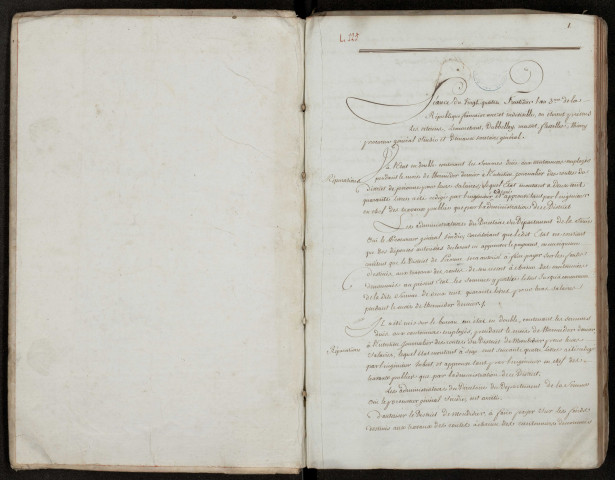 L. 229
1
Séance du vingt quatre Fructidor l'an 3.me de la
République française une et indivisible, ou étaient présens
les citoyens
procureur général sindic et secrétaire général.
Vu l'état en double contenant les sommes dues aux cantonniers employés
Réparations
pendant le mois de thermidor dernier à l'entretien journalier des routes du
district de péronne pour leurs salaires, lequel état montant à deux mil
quarante livres a été rédigé par l'ingénieur et approuvé tant par l'ingénieur
en chef des travaux publics que par l'administration du District
Les administrateurs du Directoire du Département de la Somme
Oui le Procureur général sindic, considérant que ledit état ne contient
que des dépenses autorisées déclarent en approuver le payement, en conséquence
arrêtent que le District de Péronne sera autorisé à faire payer sur les fonds
destinés aux travaux des routes de son ressort à chacun des cantonniers
dénommés au présent état les sommes y portées
de la dite somme de deux mil quarante livres, pour leurs salaires
pendant le mois de thermidor dernier.
Il a été mis sur le bureau un état en double, contenant les sommes
dues aux cantonniers employés, pendant le mois de thermidor dernier
Réparations
à l'entretien journalier des routes du District de Montdidier pour leurs
salaires, lequel état montant à sept cent soixante quatre livres a été rédigé
par l'ingénieur et approuvé tant par l'ingénieur en chef des
travaux publics que par l'administration du District.
Les administrateurs du Directoire du Département de la Somme
Oui le procureur général sindic, ont arrêté
d'autoriser le District de Montdidier à faire payer sur les fonds
destinés aux travaux des routes à chacun des cantonniers dénommés